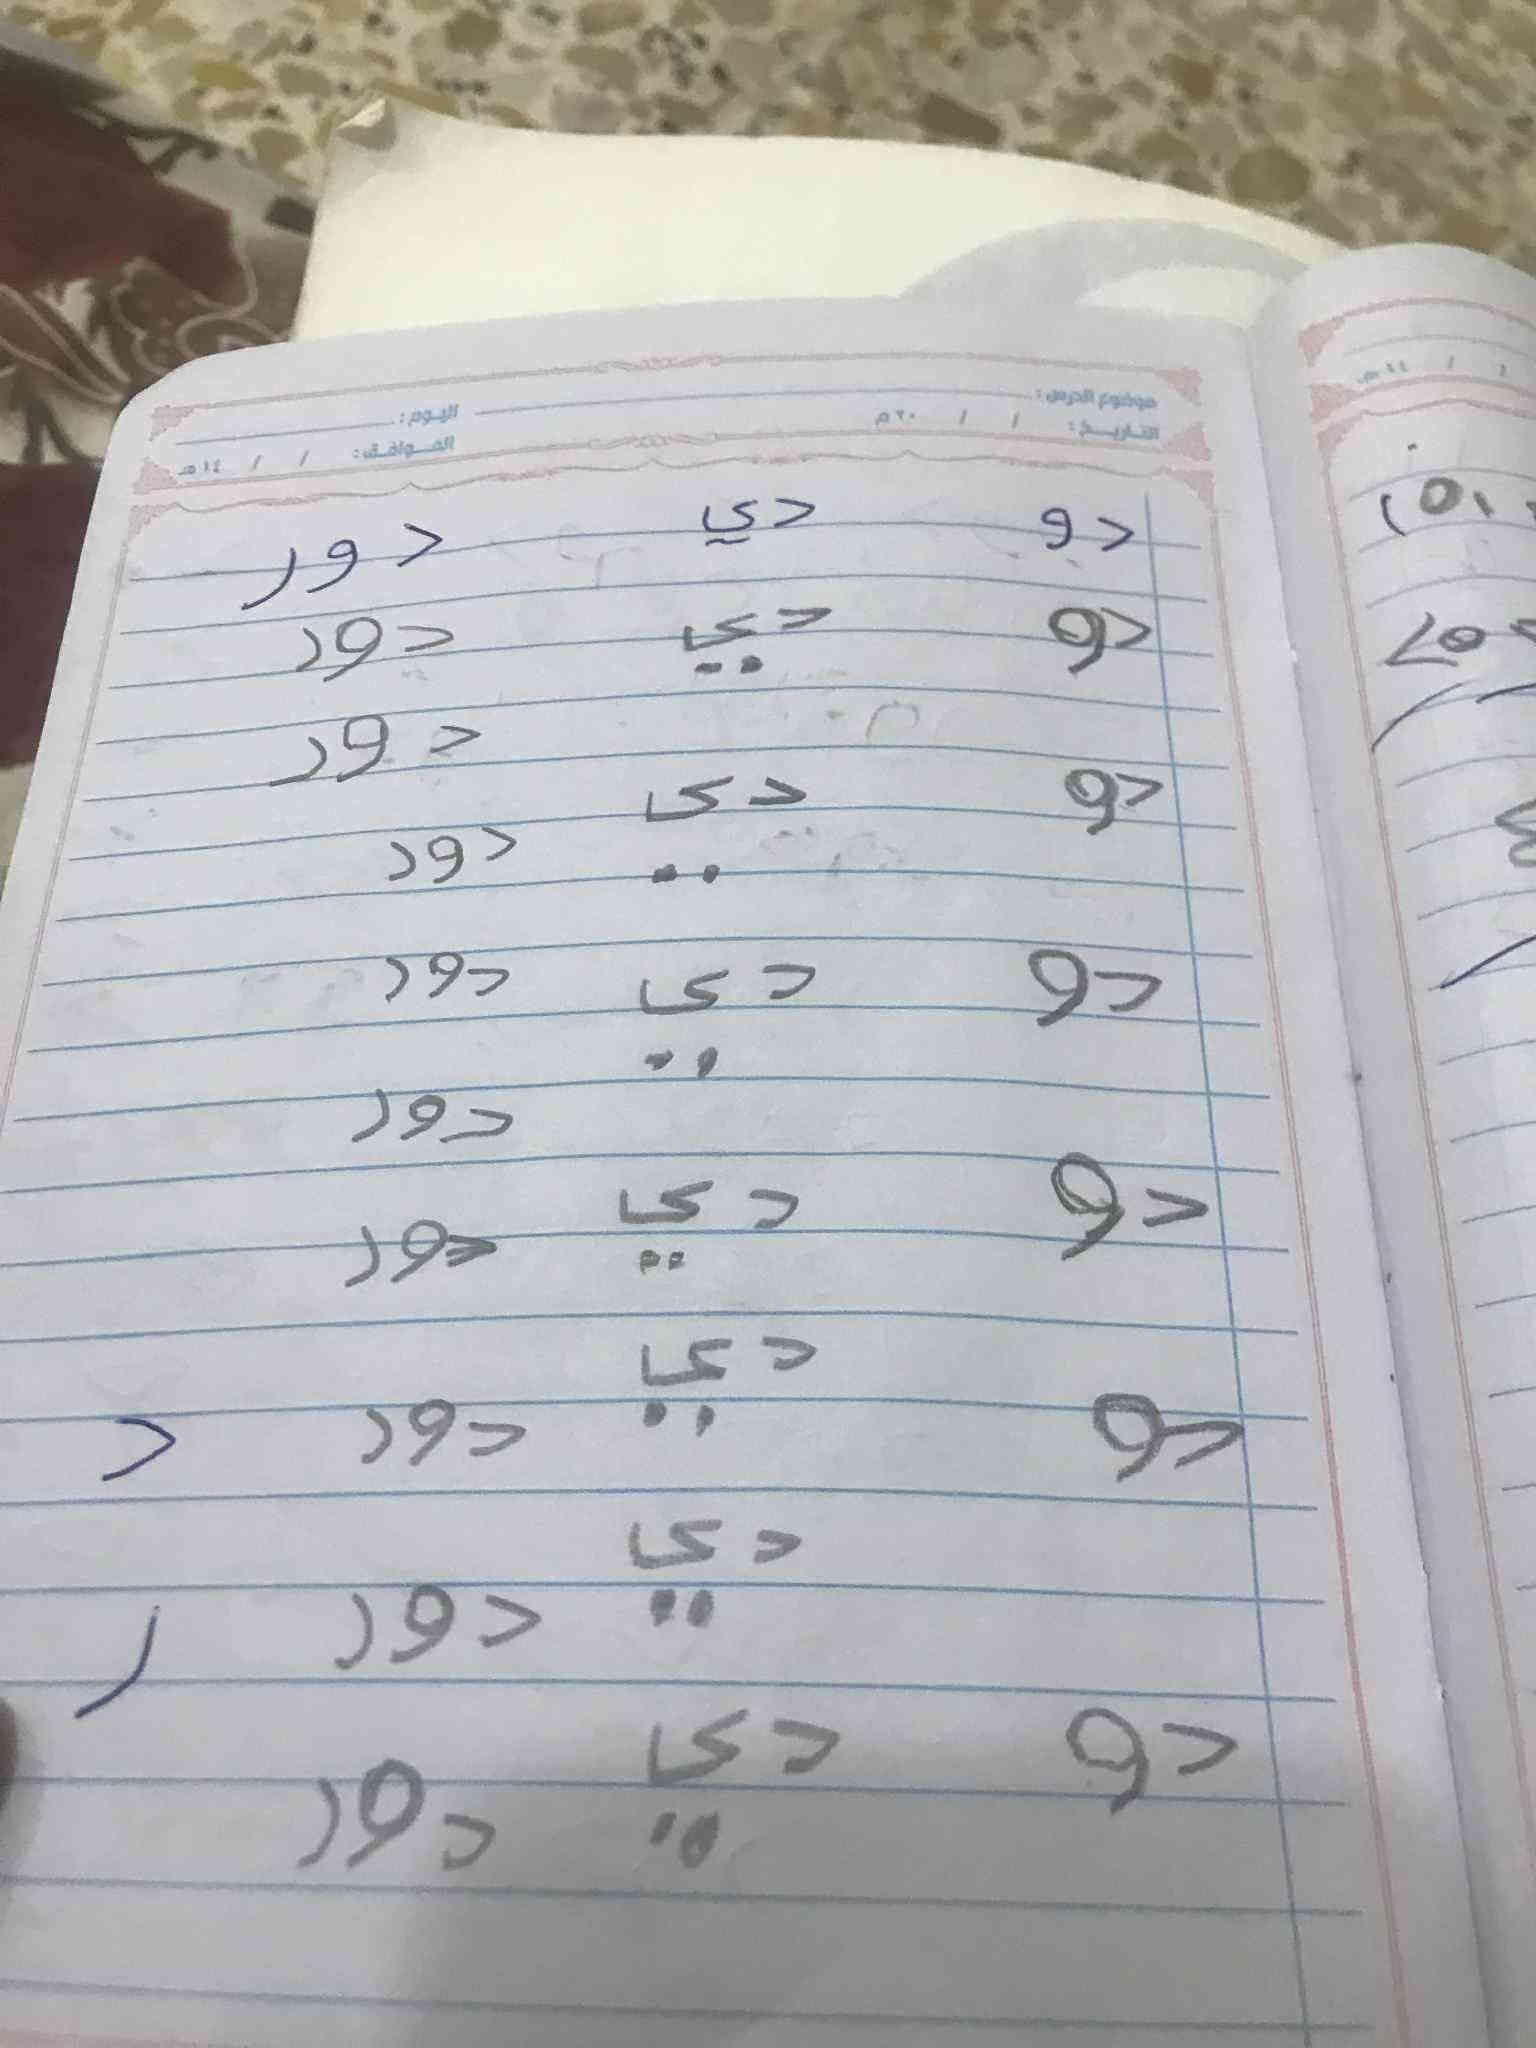 موضوع الدرس : اليوم :
التاريخ : / / ٢٠ م الموافق : / / ١٤ هـ
دو دي دور
دو دي دور
دور
دو دي
دور
دو دي دور
دور
دو دي
دور
دي
دو دور د
دي
دور ر
دو دي
دور
/ / ١٤ هـ